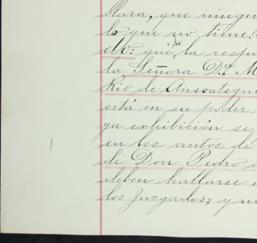 clara, que ningun
lo que no tiene
do: que la resp
la Señora Dª M
Rio de Anssategui
está en su poder
ya exhibición se
en los autos de
de Don Pedro
deben hallarse
los juzgados; y n